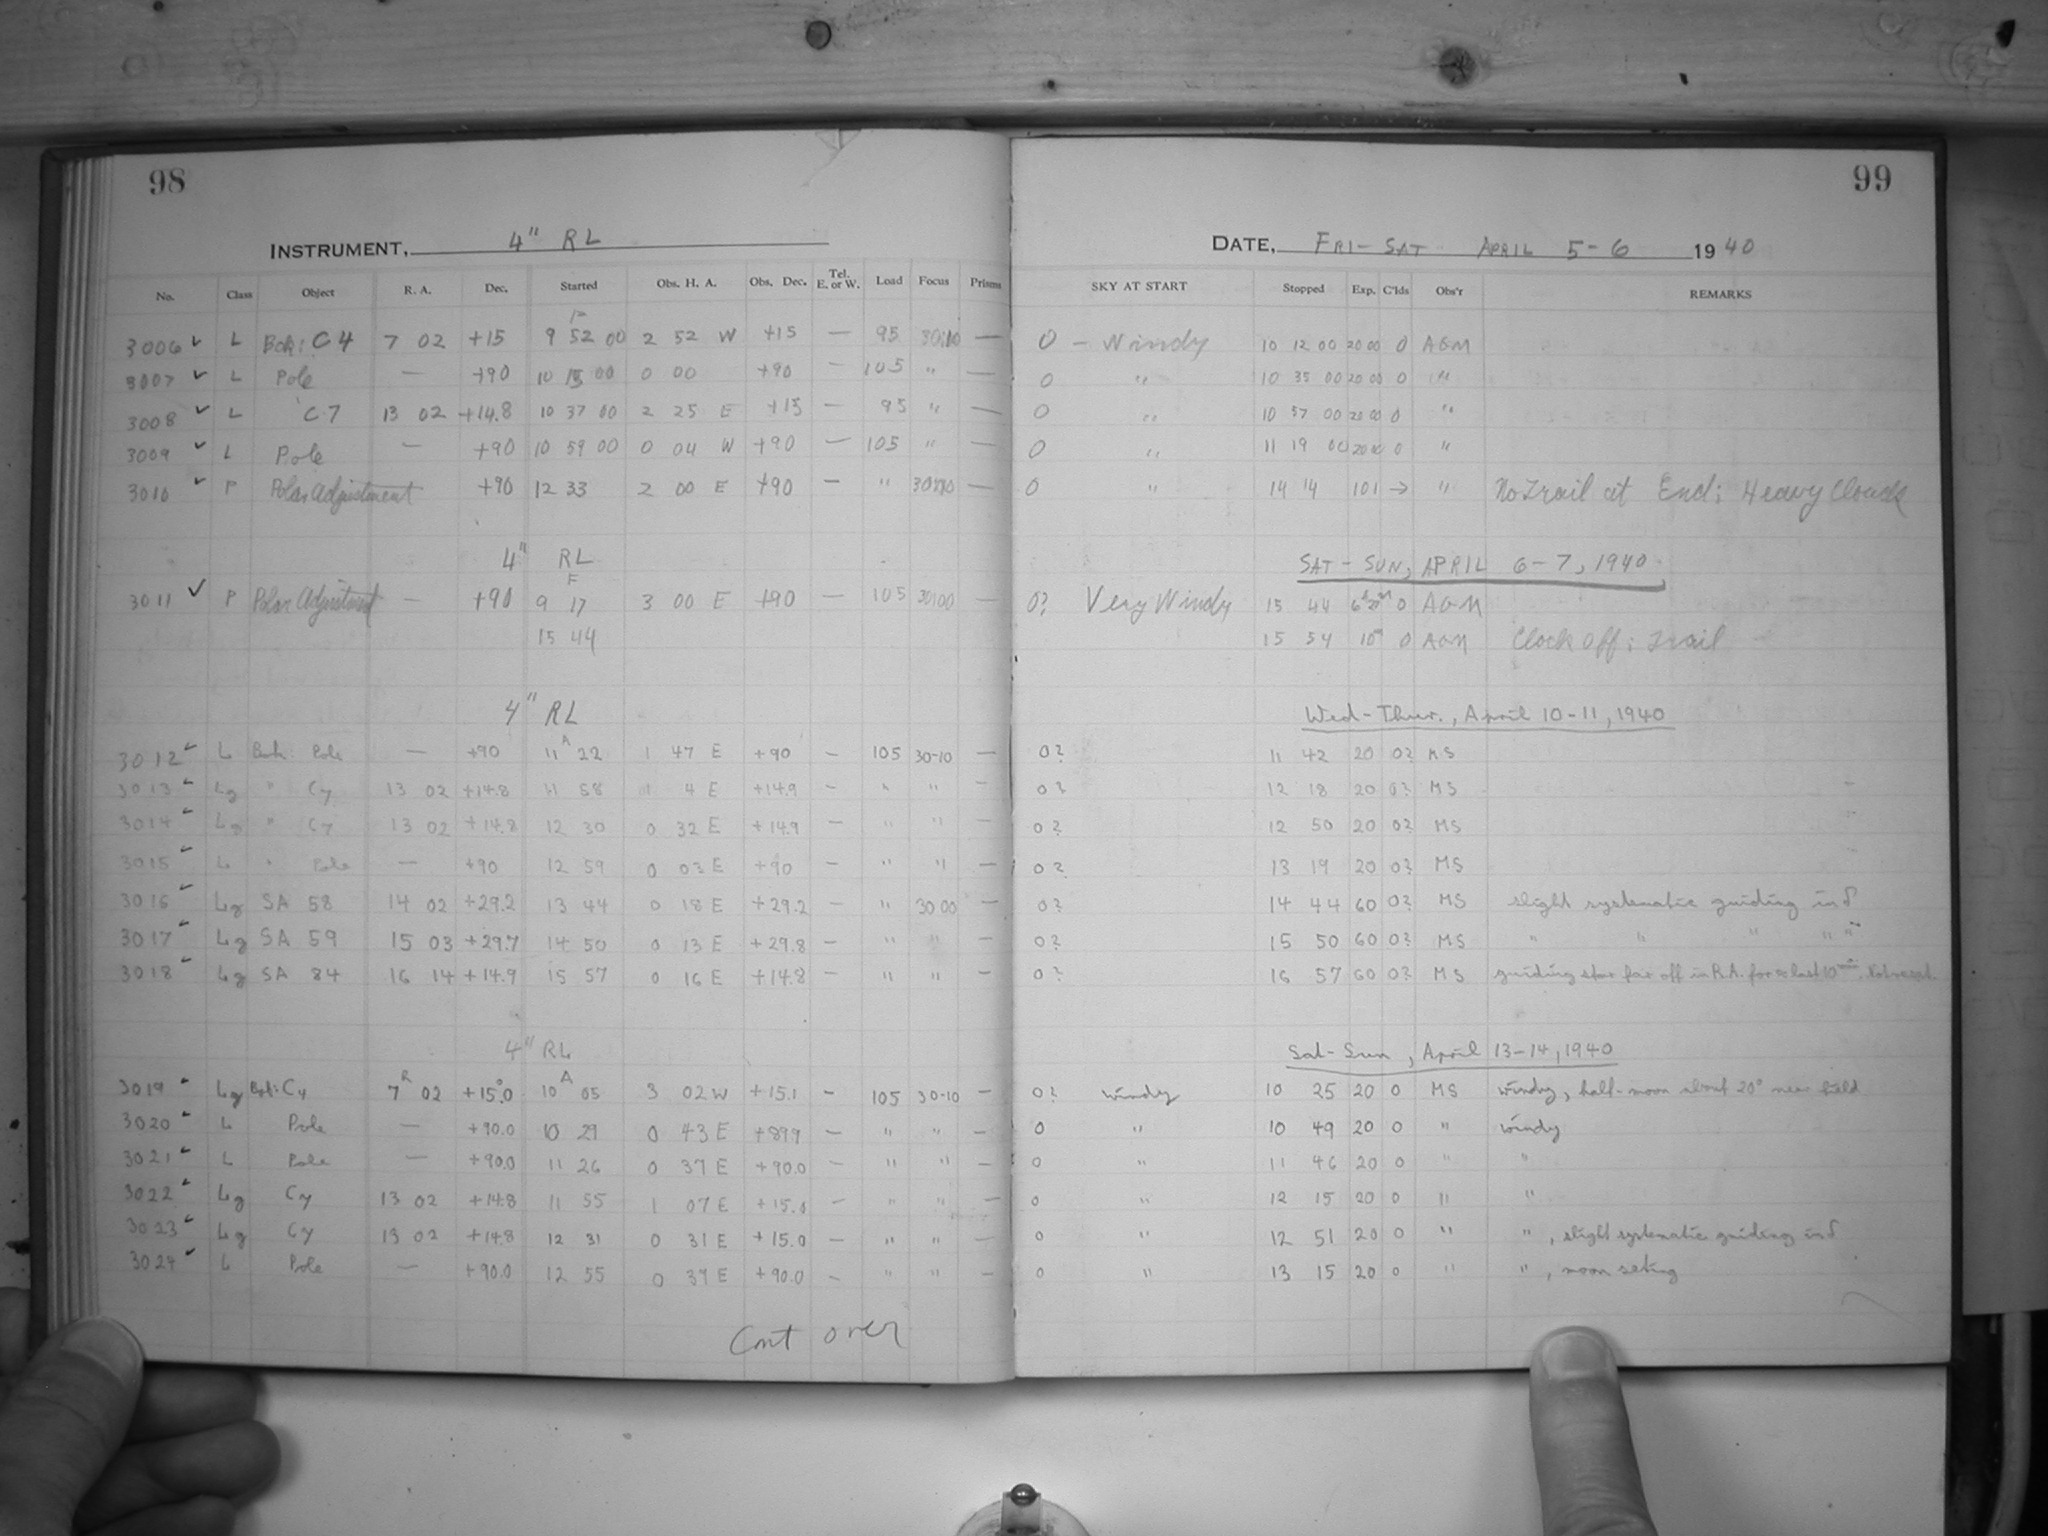 98
INSTRUMENT, 4" RL
No. Class Object R. A. Dec. Started Obs. H. A. Obs. Dec. Tel. E. or W. Load Focus Prisms
3006 ✓ L C4 7 02 +15 9 52 00 2 52 W +15 — 95 30:10 —
3007 ✓ L Pole — +90 10 15 00 0 00 +90 — 105 " —
3008 ✓ L C7 13 02 +14.8 10 37 00 2 25 E +15 — 95 " —
3009 ✓ L Pole — +90 10 59 00 0 04 W +90 — 105 " —
3010 ✓ P Polar Adjustment +90 12 33 2 00 E +90 — " —
4" RL
F
3011 ✓ P Polar Adjustment — +90 9 17 3 00 E +90 — 105 30:00 —
15 44
4" RL
A
3012 ✓ L Pole — +90 11 22 1 47 E +90 — 105 30-10 —
3013 ✓ Lg " C7 13 02 +14.8 11 58 1 4 E +14.9 — " " —
3014 ✓ Lg " C7 13 02 +14.8 12 30 0 32 E +14.9 — " " —
3015 ✓ L " Pole — +90 12 59 0 03 E +90 — " " —
3016 ✓ Lg SA 58 14 02 +29.2 13 44 0 18 E +29.2 — " 30 00 —
3017 ✓ Lg SA 59 15 03 +29.7 14 50 0 13 E +29.8 — " " —
3018 ✓ Lg SA 84 16 14 +14.9 15 57 0 16 E +14.8 — " " —
4" RL
3019 ✓ Lg C4 7 02 +15.0 10 05 3 02 W +15.1 — 105 30-10 —
3020 ✓ L Pole — +90.0 10 29 0 43 E +89.9 — " " —
3021 ✓ L Pole — +90.0 11 26 0 37 E +90.0 — " " —
3022 ✓ Lg C7 13 02 +14.8 11 55 1 07 E +15.0 — " " —
3023 ✓ Lg C7 13 02 +14.8 12 31 0 31 E +15.0 — " " —
3024 ✓ L Pole — +90.0 12 55 0 39 E +90.0 — " " —
Cont over
99
DATE, FRI - SAT APRIL 5-6 1940
SKY AT START Stopped Exp. C'lds Obs'r REMARKS
0 - Windy 10 12 00 20 00 0 AGM
0 " 10 35 00 20 00 0 "
0 " 10 57 00 20 00 0 "
0 " 11 19 00 20 00 0 "
0 " 14 14 101 → " No Trail at End: Heavy Clouds
SAT - SUN, APRIL 6-7, 1940
0? Very Windy 15 44 0 AGM
15 54 10m 0 AGM Clock off: Trail
Wed-Thur., April 10-11, 1940
0? 11 42 20 0? MS
0? 12 18 20 0? MS
0? 12 50 20 0? MS
0? 13 19 20 0? MS
0? 14 44 60 0? MS slight systematic guiding in δ
0? 15 50 60 0? MS " " " " "
0? 16 57 60 0? MS guiding star far off in R.A. for ≈ last 10 min.
Sat-Sun, April 13-14, 1940
0? windy 10 25 20 0 MS windy, half-moon about 20° near field
0 " 10 49 20 0 " windy
0 " 11 46 20 0 " "
0 " 12 15 20 0 " "
0 " 12 51 20 0 " ", slight systematic guiding in δ
0 " 13 15 20 0 " ", moon setting